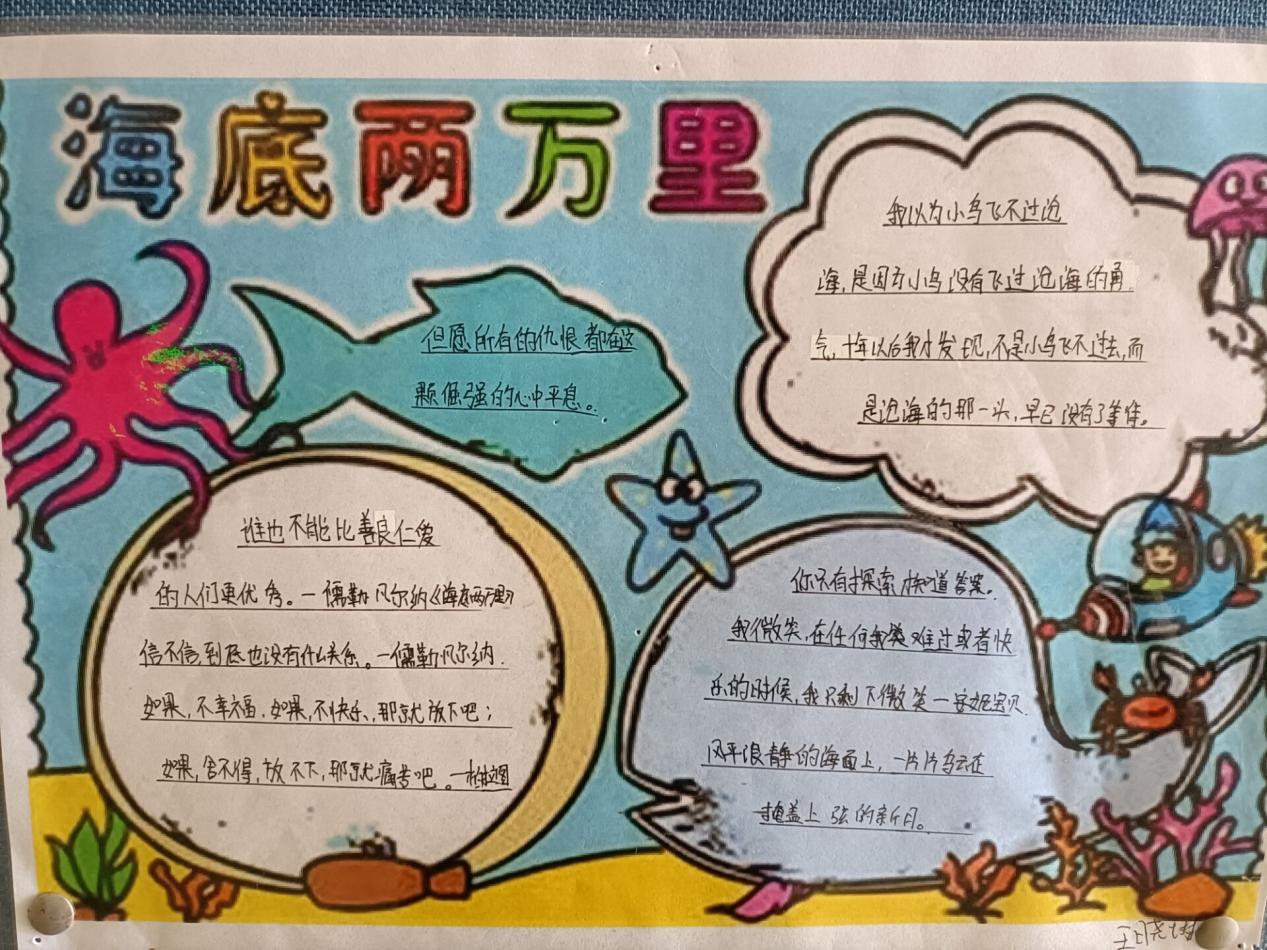 海底两万里
我以为小鸟飞不过沧
海,是因为小鸟没有飞过沧海的勇
气,十年以后我才发现,不是小鸟飞不过去,而
是沧海的那一头,早已没有了等待。
但愿所有的仇恨都在这
颗倔强的心中平息。
谁也不能比善良仁俊
的人们更优秀。一儒勒凡尔纳《海底两万里》
信不信到底也没有什么关系。一儒勒凡尔纳.
如果,不幸福.如果,不快乐,那就放下吧;
如果,舍不得,放不下,那就痛苦吧。一
你只有探索才知道答案。
我微笑,在任何我难过或者快
乐的时候,我只剩下微笑一安妮宝贝
风平浪静的海面上,一片片乌云在
掩盖上弦的新月。